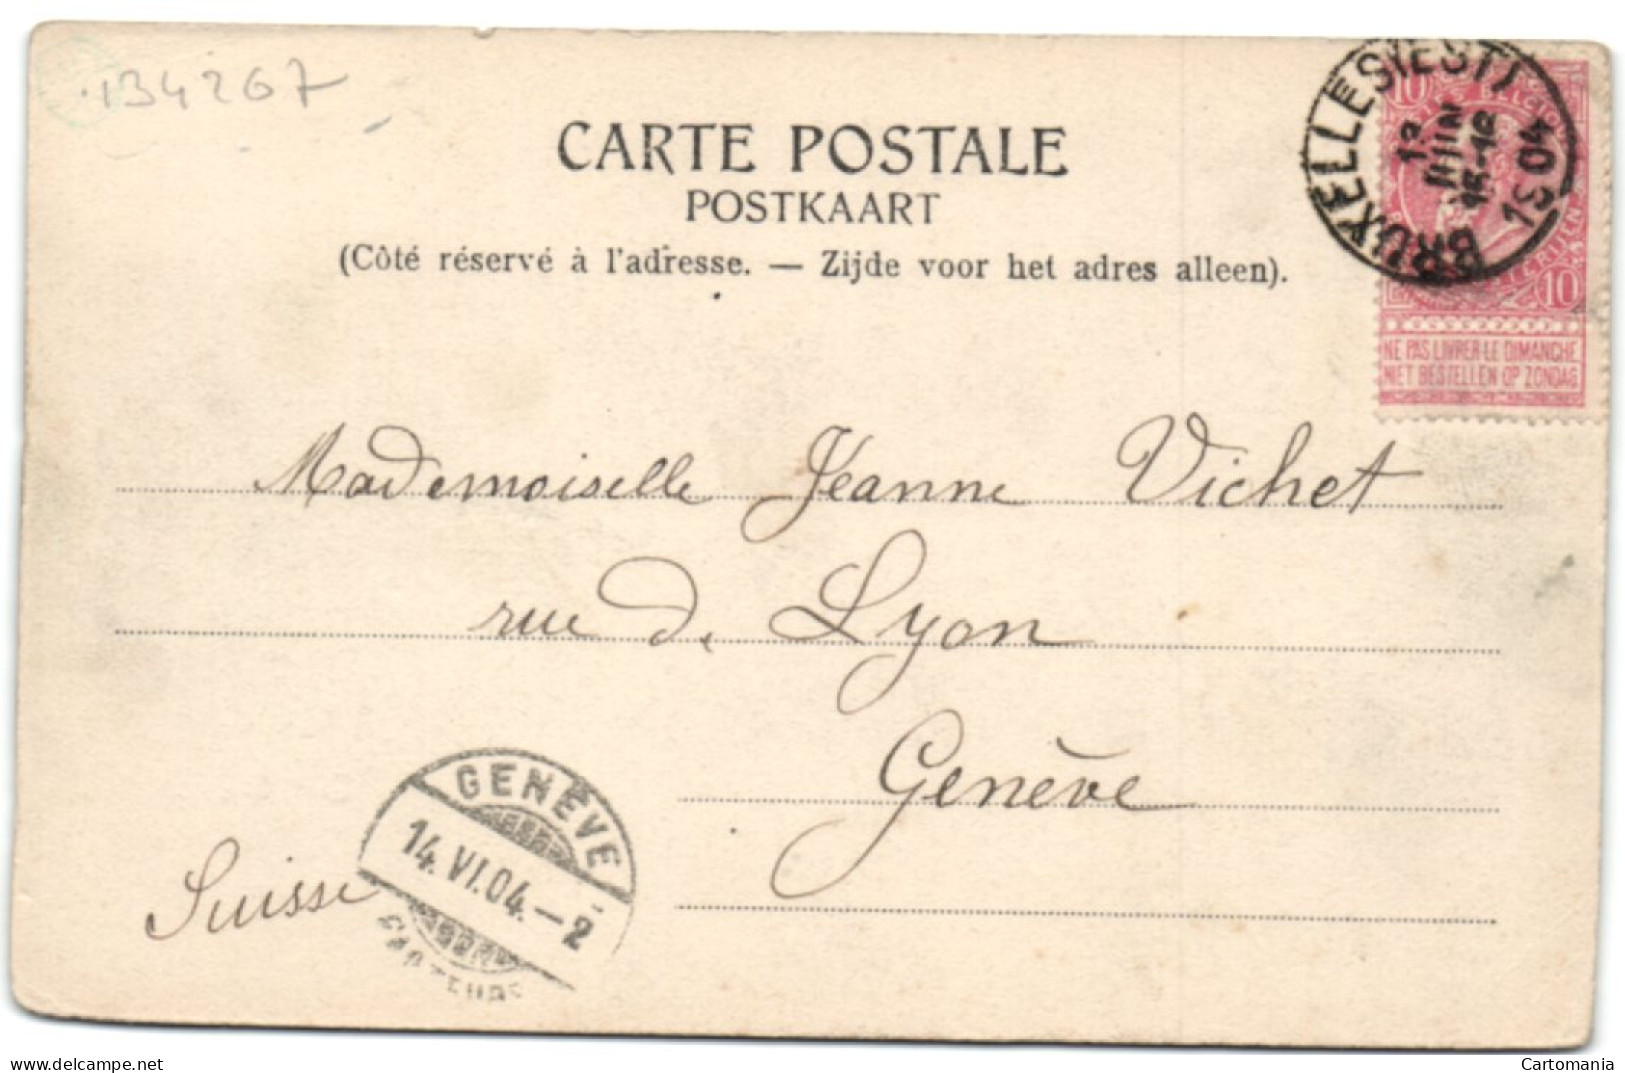 134267
CARTE POSTALE
POSTKAART
(Côté réservé à l'adresse. — Zijde voor het adres alleen).
BRUXELLES (EST)
JUIN
1904
10
10
NE PAS LIVRER LE DIMANCHE
NIET BESTELLEN OP ZONDAG
Mademoiselle Jeanne Vichet
rue de Lyon
Genève
Suisse
GENÈVE
14.VI.04.—2
delcampe.net
Cartomania